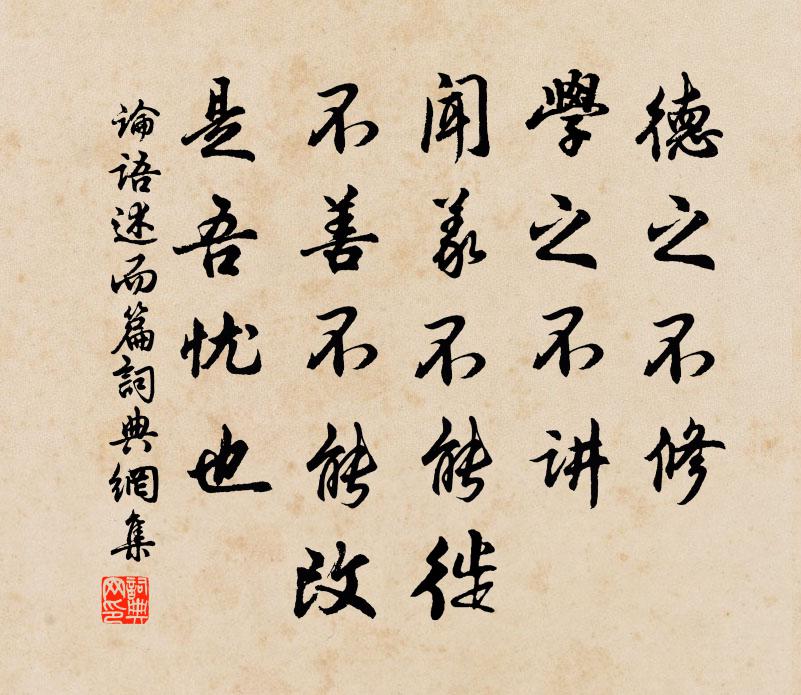 德之不修
學之不讲
闻義不能徙
不善不能改
是吾忧也
论语述而篇詞典網集
詞典网印